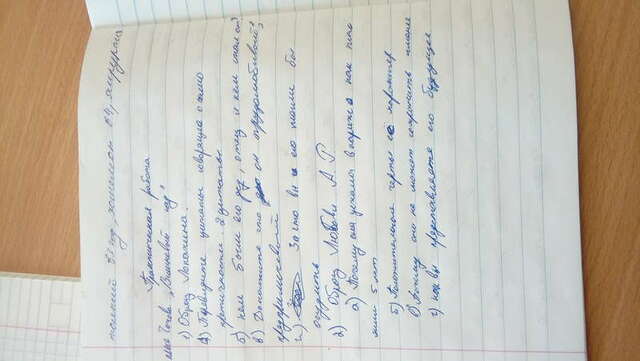 Практическая работа
Чехова „Вишнёвый сад"
1) Образ Лопахина.
а) Приведите цитаты говорящие о его
2 цитаты
б) кем были его дед, отец и кем стал он?
в) Докажите что он трудолюбивый,
предприимчивый
г) За что вы его могли бы
осудить
2) Образ Любови А. Р
а) Почему она уехала в париж и как
5 лет
б) Положительные черты её характер
в) Почему она не может сохранить имение
г) как вы представляете его будущее